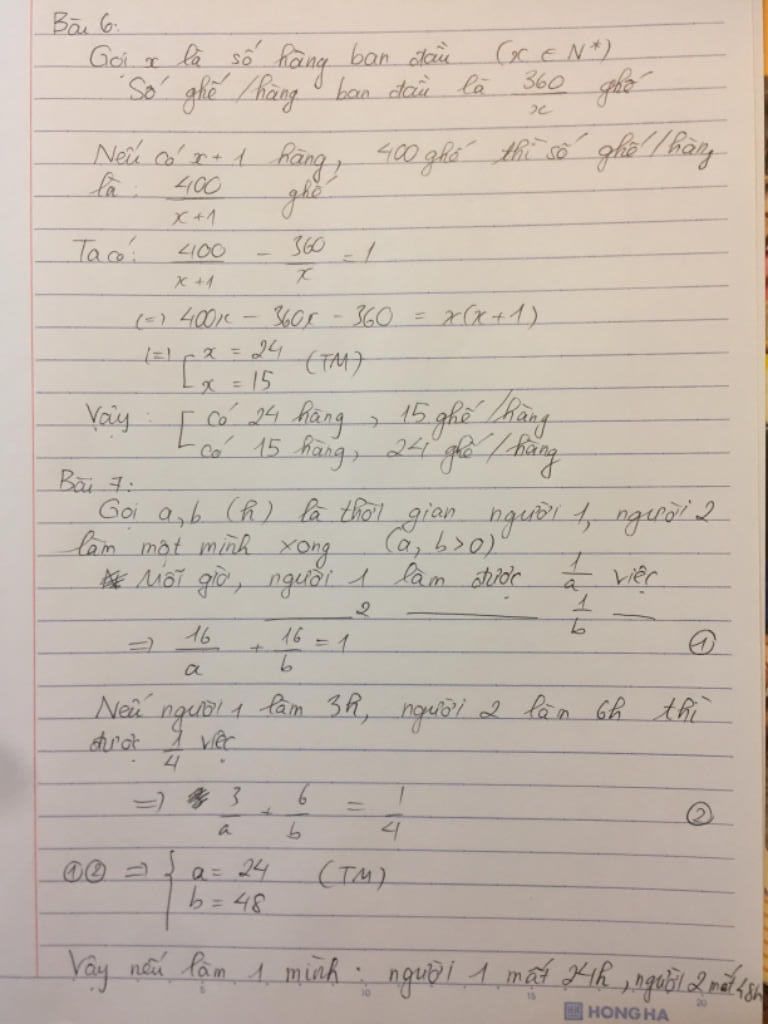 Bài 6:
Gọi x là số hàng ban đầu (x ∈ N*)
Số ghế/hàng ban đầu là 360/x ghế
Nếu có x+1 hàng, 400 ghế thì số ghế/hàng
là: 400/(x+1) ghế
Ta có: 400/(x+1) - 360/x = 1
(=) 400x - 360x - 360 = x(x+1)
(=) [ x = 24 (TM)
x = 15
Vậy: [ có 24 hàng, 15 ghế/hàng
có 15 hàng, 24 ghế/hàng
Bài 7:
Gọi a, b (h) là thời gian người 1, người 2
làm một mình xong (a, b > 0)
Mỗi giờ, người 1 làm được 1/a việc
2 1/b
=> 16/a + 16/b = 1 ①
Nếu người 1 làm 3h, người 2 làm 6h thì
được 1/4 việc
=> 3/a + 6/b = 1/4 ②
①② => { a = 24 (TM)
b = 48
Vậy nếu làm 1 mình: người 1 mất 24h, người 2 mất 48h
5 10 15 20
HONG HA